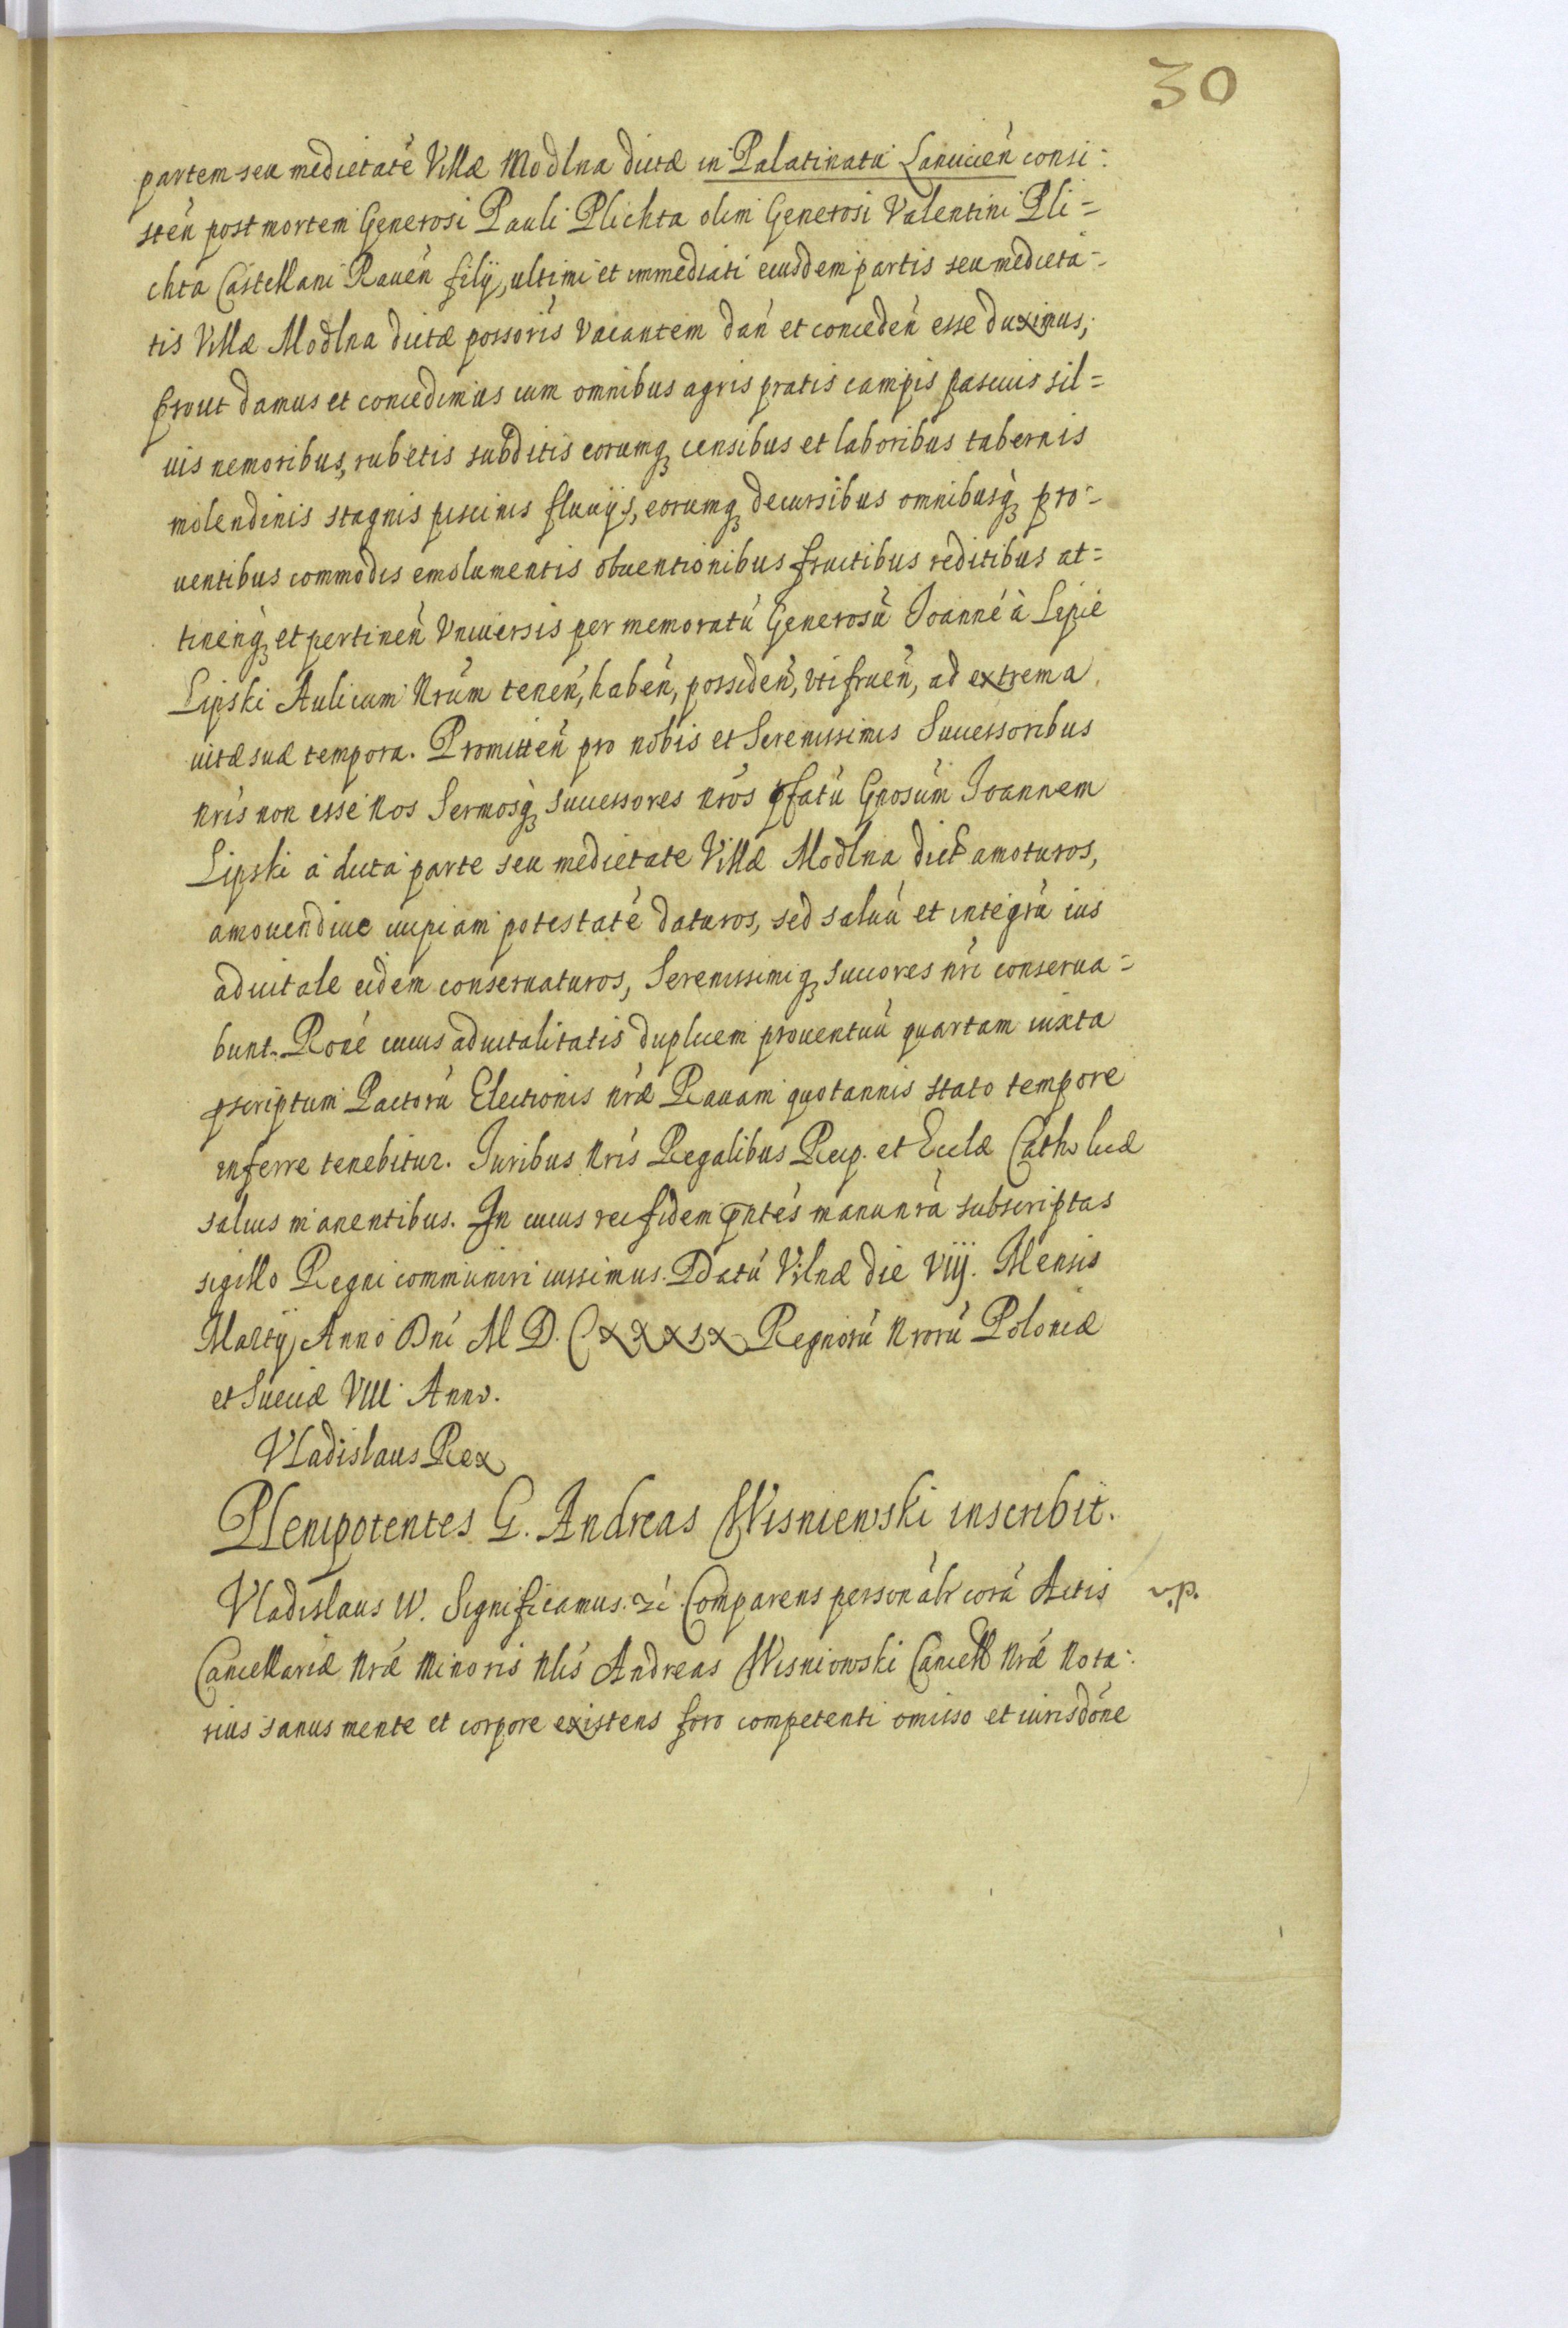 30
partem seu medietatẽ Villæ Modlna dictæ in Palatinatu Lanciciẽn consi:
stẽn post mortem Generosi Pauli Plichta olim Generosi Valentini Pli=
chta Castellani Rauẽn filij, ultimi et immediati eiusdem partis seu medieta=
tis Villæ Modlna dictæ possoris vacantem dañ et concedẽn esse duximus,
prout damus et concedimus cum omnibus agris pratis campis pascuis sil=
uis nemoribus, rubetis subditis eorumq censibus et laboribus tabernis
molendinis stagnis piscinis fluuijs, eorumq decursibus omnibusq pro=
uentibus commodis emolumentis obuentionibus fructibus reditibus at=
tineñq et pertineñ Vniuersis per memoratũ Generosũ Joannẽ à Lipie
Lipski Aulicum Nrũm teneñ, habeñ, possideñ, vtifrueñ, ad extrema
uitæ suæ tempora. Promitteñ pro nobis et Serenissimis Successoribus
nrĩs non esse Nos Sermosq Successores nrõs pfatũ Gnosũm Joannem
Lipski à dicta parte seu medietate Villæ Modlna dict amoturos,
amouendiue cuipiam potestatẽ daturos, sed saluũ et integrũ ius
aduitale eidem conseruaturos, Serenissimiq Succores nrĩ conserua=
bunt. Rõne cuius aduitalitatis duplicem prouentuũ quartam iuxta
pscriptum Pactorũ Electionis nrǽ Rauam quotannis stato tempore
inferre tenebitur. Juribus Nrĩs Regalibus Reip. et Eccłæ Catholicæ
saluis manentibus. In cuius rei fidem pntẽs manu nrã subscriptas
sigillo Regni communiri iussimus. Datũ Vilnæ die VIIj. Mensis
Martij Anno Dnĩ M D. CXXXIX Regnorũ Nrorũ Poloniæ
et Sueciæ VIII Anno.
Vladislaus Rex
Plenipotentes G. Andreas Wisniewski inscribit.
Vladislaus W. Significamus. Comparens personalr corã Actis v.p.
Cancellariæ Nrǽ Minoris Nlĩs Andreas Wisniowski Cancell Nrǽ Nota:
rius sanus mente et corpore existens foro competenti omisso et iurisdõne